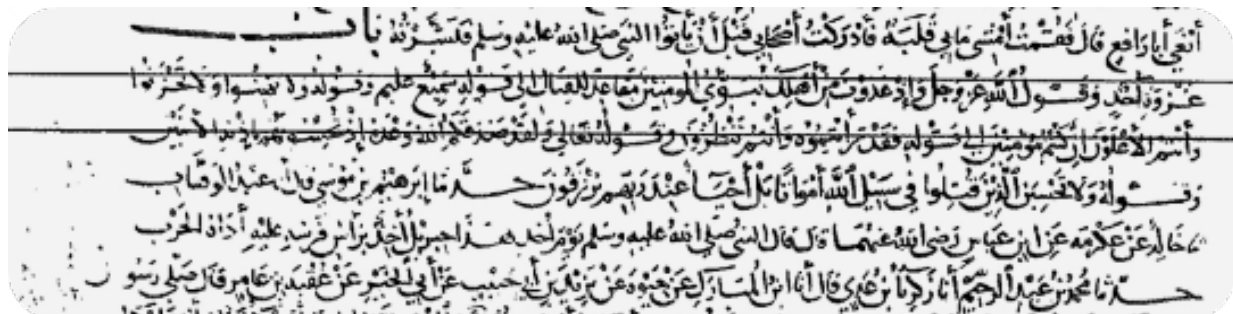 أنعى أبا رافع قال فقمت أمشي ما بي قلبة فأدركت أصحابي قبل أن يأتوا النبي صلى الله عليه وسلم فبشرته باب
غزوة أحد وقول الله عز وجل وإذ غدوت من أهلك تبوئ المؤمنين مقاعد للقتال إلى قوله سميع عليم وقوله ولا تهنوا ولا تحزنوا
وأنتم الأعلون إن كنتم مؤمنين إلى قوله فقد رأيتموه وأنتم تنظرون وقوله تعالى ولقد صدقكم الله وعده إذ تحسونهم بإذنه الآيتين
وقوله ولا تحسبن الذين قتلوا في سبيل الله أمواتا بل أحياء عند ربهم يرزقون حدثنا إبرهيم بن موسى قال عبد الوهاب
خالد عن عكرمة عن ابن عباس رضي الله عنهما قال قال النبي صلى الله عليه وسلم يوم أحد هذا جبريل آخذ برأس فرسه عليه أداة الحرب
حدثنا محمد بن عبد الرحيم أنا زكريا بن عدي قال أنا ابن المبارك عن حيوة عن يزيد بن أبي حبيب عن أبي الخير عن عقبة بن عامر قال صلى رسو